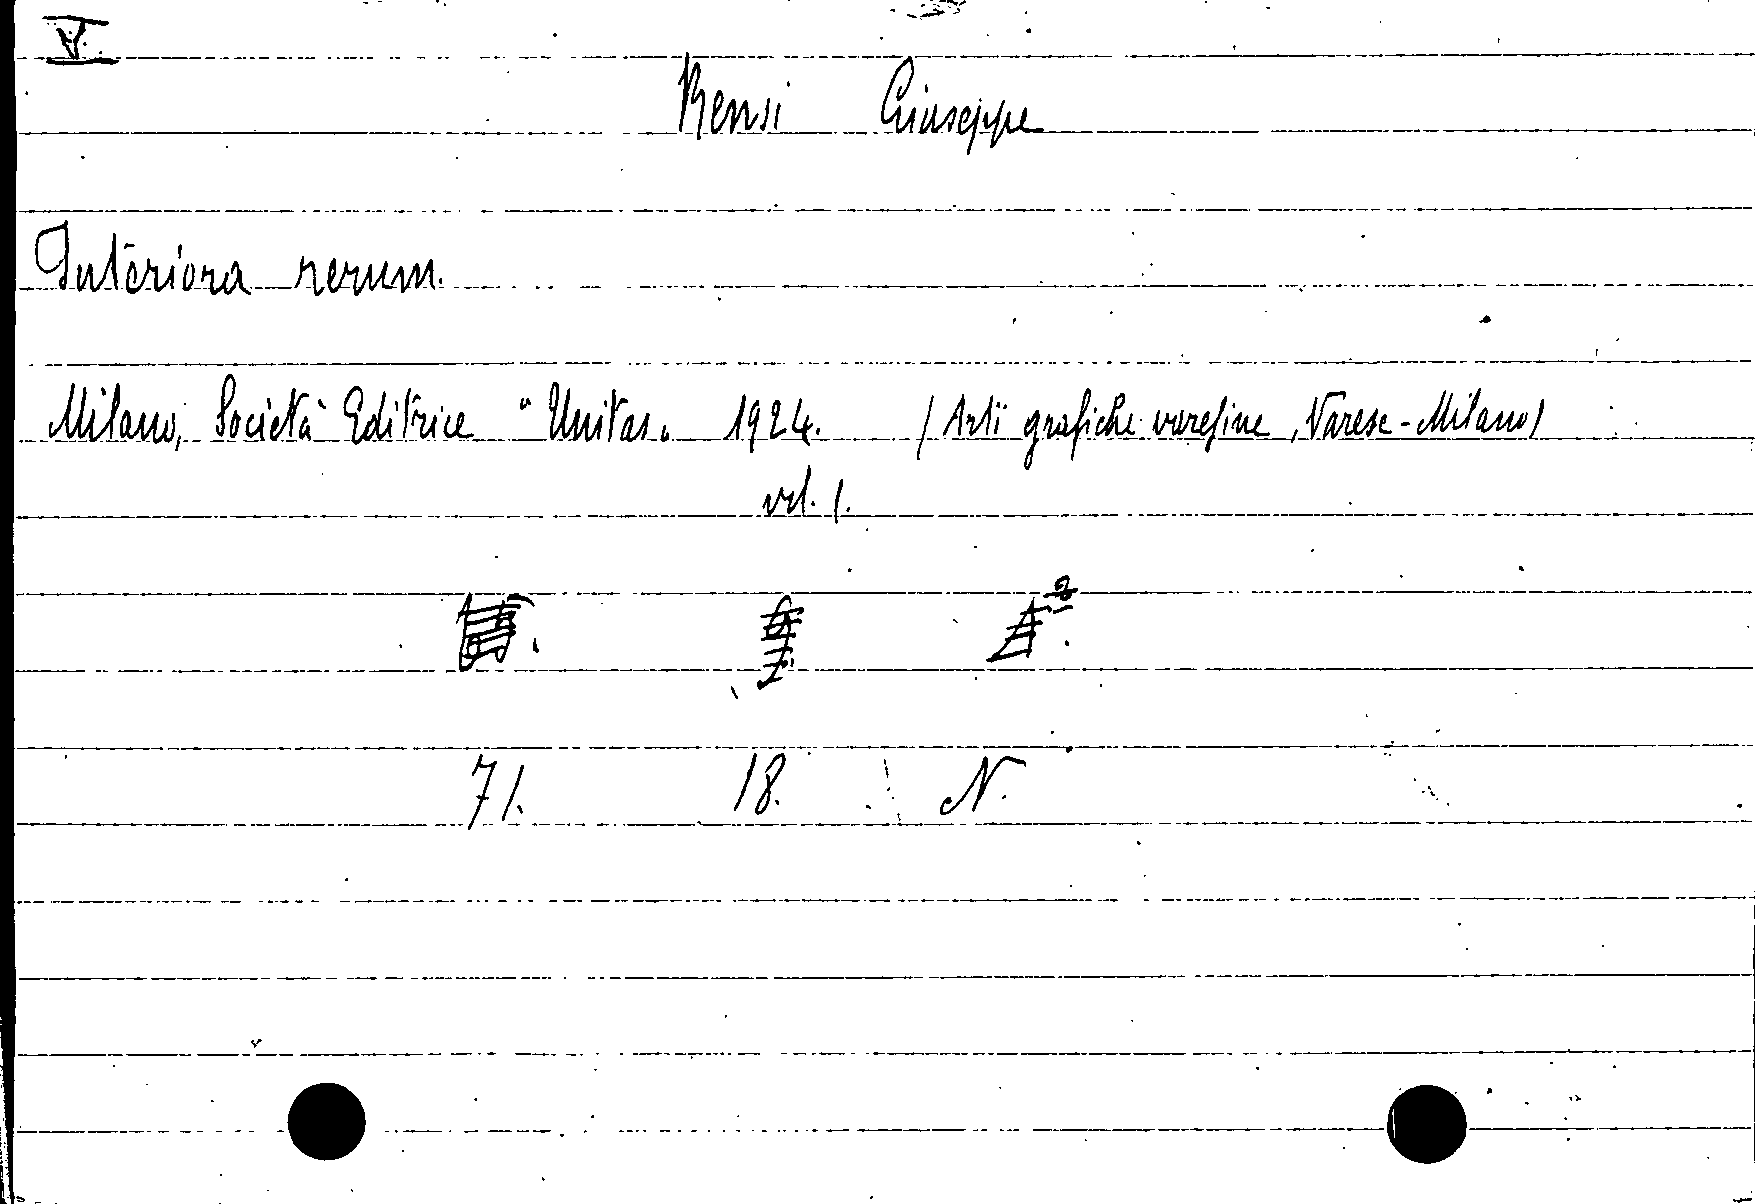 V
Rensi Giuseppe
Interiora rerum.
Milano, Società Editrice "Unitas" 1924. (Arti grafiche varesine, Varese-Milano)
vol. 1.
71. 18. N.